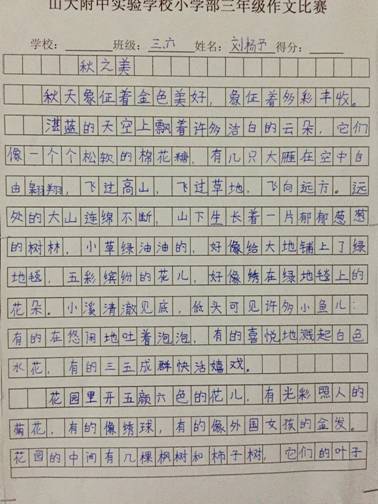 山大附中实验学校小学部三年级作文比赛
学校：________班级：三.六 姓名：刘杨予 得分：
秋之美
秋天象征着金色美好，象征着多彩丰收。
湛蓝的天空上飘着许多洁白的云朵，它们
像一个个松软的棉花糖，有几只大雁在空中自
由翱翔，飞过高山，飞过草地，飞向远方。远
处的大山连绵不断，山下生长着一片郁郁葱葱
的树林，小草绿油油的，好像给大地铺上了绿
地毯，五彩缤纷的花儿，好像绣在绿地毯上的
花朵。小溪清澈见底，低头可见许多小鱼儿：
有的在悠闲地吐着泡泡，有的喜悦地溅起白色
水花，有的三五成群快活嬉戏。
花园里开五颜六色的花儿，有光彩照人的
菊花，有的像绣球，有的像外国女孩的金发。
花园的中间有几棵枫树和柿子树，它们的叶子